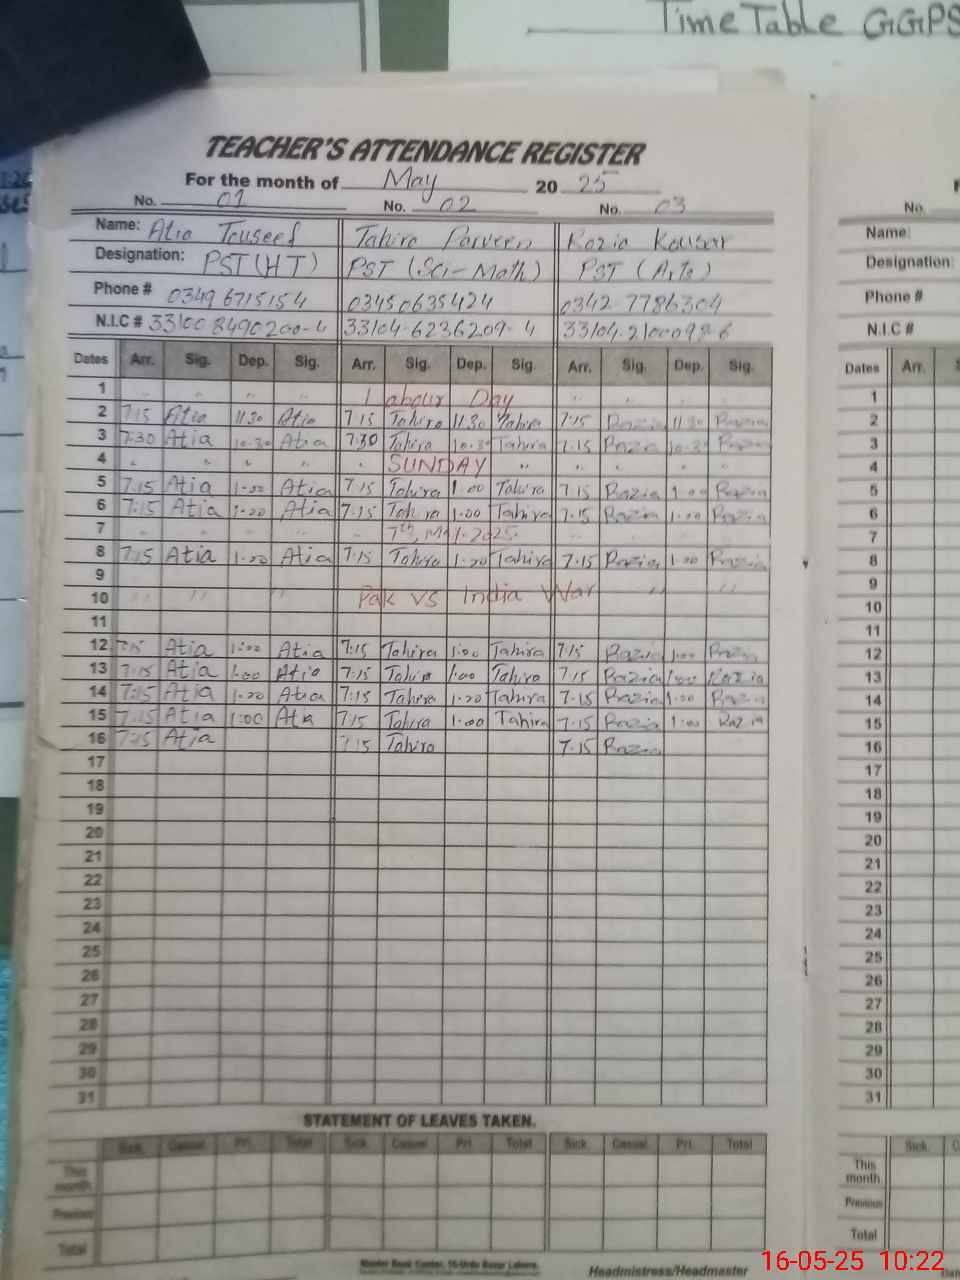 Time Table GGPS
TEACHER'S ATTENDANCE REGISTER
For the month of May 20 25
No. 01 No. 02 No. 03 No.
Name: Atia Touseef Tahira Parveen Razia Kousar Name:
Designation: PST (HT) PST (Sci-Math) PST (Arts) Designation:
Phone # 0349 6715154 03450635424 0342-7786304 Phone #
N.I.C # 33100 8490200-4 33104-6236209-4 33104-2100098-6 N.I.C #
Dates Arr. Sig. Dep. Sig. Arr. Sig. Dep. Sig. Arr. Sig. Dep. Sig. Dates Arr.
1 " " " " Labour Day " " " " 1
2 7:15 Atia 11.30 Atia 7:15 Tahira 11.30 Tahira 7:15 Razia 11.30 Razia 2
3 7:30 Atia 10-30 Atia 7:30 Tahira 10-30 Tahira 7.15 Razia 10-30 Razia 3
4 " " " " " SUNDAY " " " " " 4
5 7:15 Atia 1-00 Atia 7:15 Tahira 1.00 Tahira 7.15 Razia 1.00 Razia 5
6 7:15 Atia 1-00 Atia 7:15 Tahira 1.00 Tahira 7.15 Razia 1.00 Razia 6
7 " " " " 7th, May-2025. " " " 7
8 7:15 Atia 1-00 Atia 7:15 Tahira 1-00 Tahira 7.15 Razia 1-00 Razia 8
9 9
10 " " " Pak vs India War " " 10
11 11
12 7:15 Atia 1:00 Atia 7:15 Tahira 1:00 Tahira 7:15 Razia 1:00 Razia 12
13 7:15 Atia 1.00 Atia 7:15 Tahira 1.00 Tahira 7.15 Razia 1.00 Razia 13
14 7:15 Atia 1-00 Atia 7:15 Tahira 1-00 Tahira 7-15 Razia 1-00 Razia 14
15 7:15 Atia 1:00 Atia 7:15 Tahira 1-00 Tahira 7.15 Razia 1:00 Razia 15
16 7:15 Atia 7:15 Tahira 7.15 Razia 16
17 17
18 18
19 19
20 20
21 21
22 22
23 23
24 24
25 25
26 26
27 27
28 28
29 29
30 30
31 31
STATEMENT OF LEAVES TAKEN.
Sick. Casual. Pri. Total Sick. Casual Pri. Total Sick. Casual. Pri. Total Sick.
This month This month
Previous Previous
Total Total
Master Book Center, 16-Urdu Bazar Lahore.
Headmistress/Headmaster
16-05-25 10:22